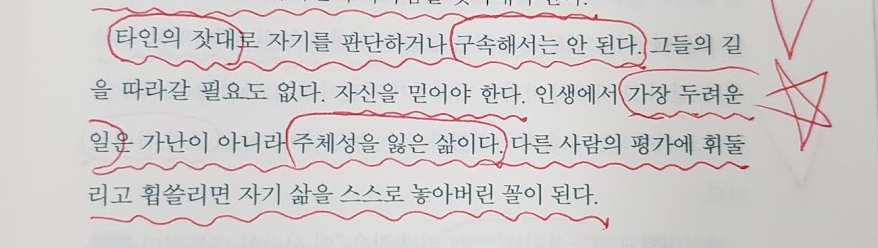 타인의 잣대로 자기를 판단하거나 구속해서는 안 된다. 그들의 길
을 따라갈 필요도 없다. 자신을 믿어야 한다. 인생에서 가장 두려운
일은 가난이 아니라 주체성을 잃은 삶이다. 다른 사람의 평가에 휘둘
리고 휩쓸리면 자기 삶을 스스로 놓아버린 꼴이 된다.